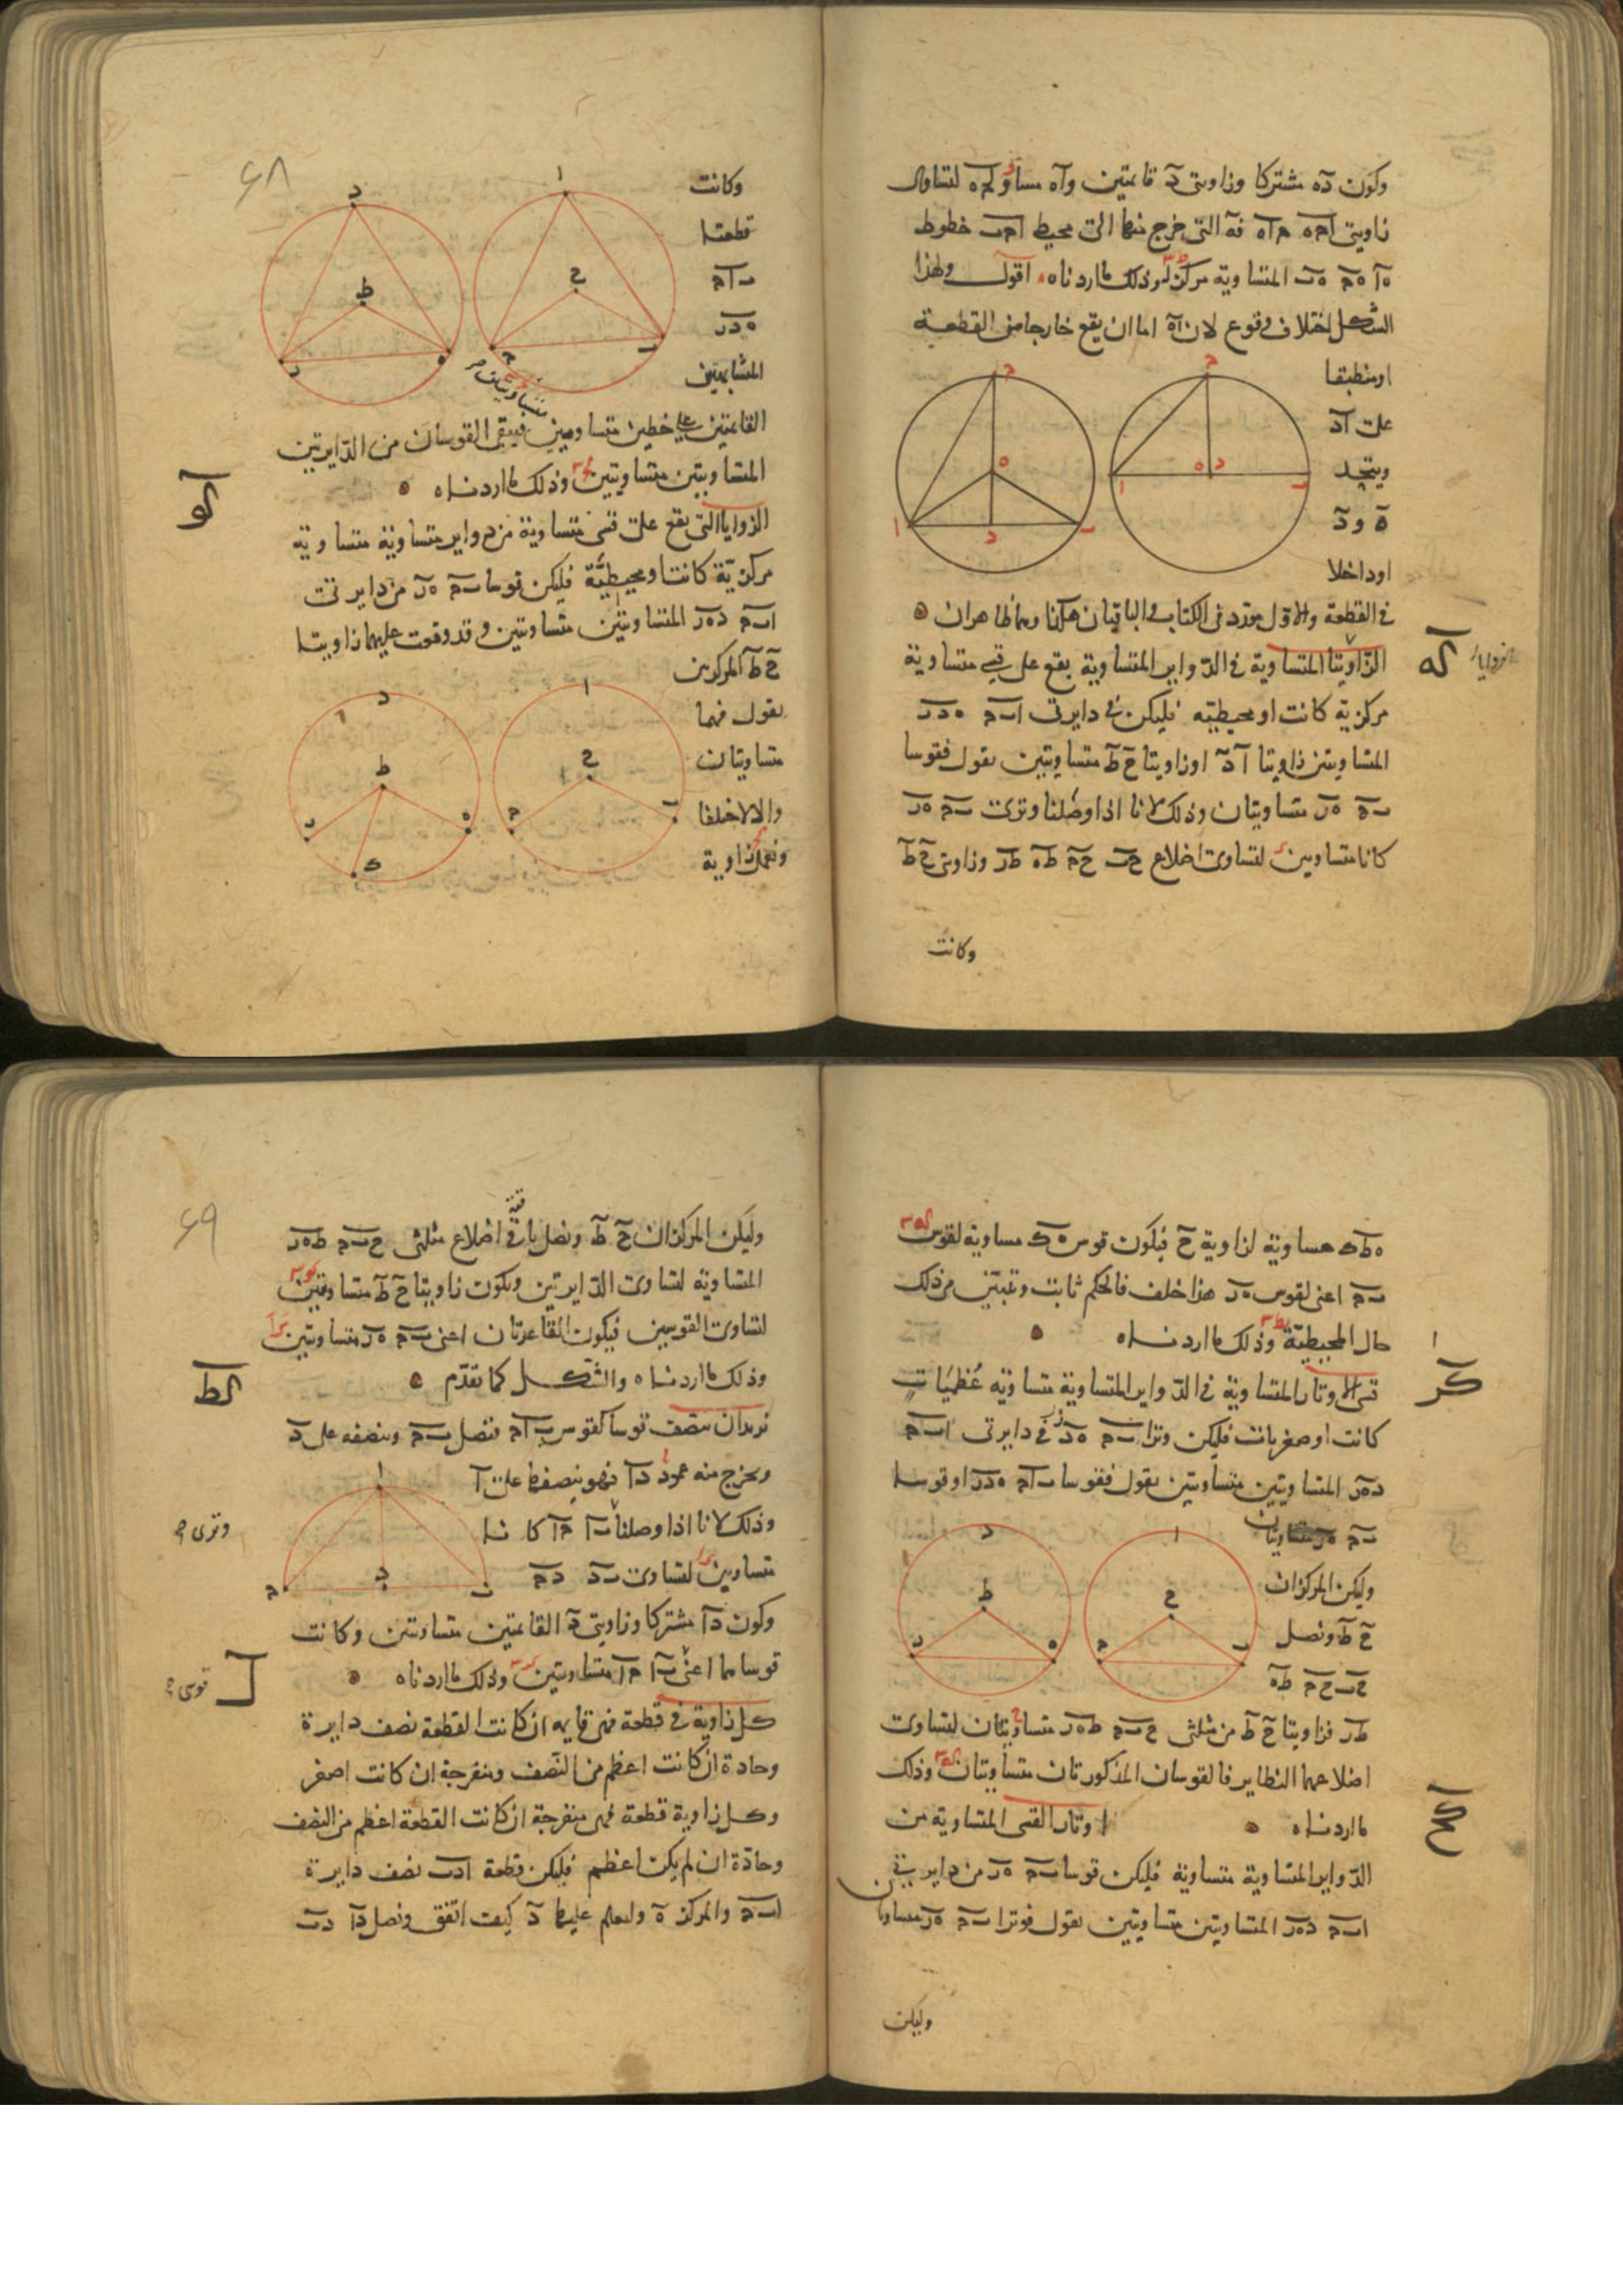 وكون ده مشتركا وزاويتى د قائمتين واه مساو لجه لتساوى
زاويتى اجه جاه فه التى خرج منها الى محيط اجب خطوط
ها هج هب المتساوية مركز وذلك ما اردناه اقول ولهذا
الشكل اختلاف وقوع لان اه اما ان يقع خارجا من القطعة
او منطبقا
على اد
ويتحد
ه و د
او داخلا
فى القطعة والاول مورد فى الكتاب والباقيان هكذا وهما ظاهران
كه
الزوايا
الزاويتا المتساوية فى الدواير المتساوية يقع على قسى متساوية
مركزية كانت او محيطية فليكن فى دايرتى ابج هدز
المتساويتين زاويتا ا د او زاويتا ح ط متساويتين نقول فقوسا
بج هز متساويتان وذلك لانا اذا وصلنا وترى بج هز
كانا متساويين لتساوى اضلاع حب حج طه طز وزاويتى ح ط
وكانت
٦٨
وكانت
قطعتا
باج
هدز
المتشابهتين
متساويتين
القائمتين على خطين متساويين فيبقى القوسان من الدايرتين
المتساويتين متساويتين وذلك ما اردناه
كو
الزوايا التى يقع على قسى متساوية من دواير متساوية متساوية
مركزية كانت او محيطية فليكن قوسا بج هز من دايرتى
ابج دهز المتساويتين متساويتين وقد وقعت عليهما زاويتا
ح ط المركزيتين
نقول فهما
متساويتان
والا لاختلفا
ونعمل زاوية
هطك مساوية لزاوية ح فيكون قوس هك مساوية لقوس
بج اعنى لقوس هز هذا خلف فالحكم ثابت وتبين من ذلك
حال المحيطية وذلك ما اردناه
كز
قسى الاوتار المتساوية فى الدواير المتساوية متساوية عظميات
كانت او صغريات فليكن وترا بج هز فى دايرتى ابج
دهز المتساويتين متساويين نقول فقوسا باج هدز او قوسا
بج هز متساويتان
وليكن المركزان
ح ط ونصل
حب حج طه
طز فزاويتا ح ط من مثلثى حبج طهز متساويتان لتساوى
اضلاعهما النظاير فالقوسان المذكورتان متساويتان وذلك
ما اردناه
اوتار القسى المتساوية من
كح
الدواير المتساوية متساوية فليكن قوسا بج هز من دايرتى
ابج دهز المتساويتين متساويتين نقول فوترا بج هز متساويان
وليكن
٦٩
وليكن المركزان ح ط ونصل باقى اضلاع مثلثى حبج طهز
المتساوية لتساوى الدايرتين ويكون زاويتا ح ط متساويتين
لتساوى القوسين فيكون القاعدتان اعنى بج هز متساويتين
وذلك ما اردناه والشكل كما تقدم
كط
نريد ان ننصف قوسا كقوس باج فنصل بج وننصفه على د
ونخرج منه عمود دا فهو ينصفها على ا
وذلك لانا اذا وصلنا با جا كانا
وترى
متساويين لتساوى بد دج
وكون دا مشتركا وزاويتى د القائمتين متساويتين وكانت
قوساهما اعنى با جا متساويتين وذلك ما اردناه
قوسى
ل
كل زاوية فى قطعة فهى قايمة ان كانت القطعة نصف دايرة
وحادة ان كانت اعظم من النصف ومنفرجة ان كانت اصغر
وكل زاوية قطعة فهى منفرجة ان كانت القطعة اعظم من النصف
وحادة ان لم يكن اعظم فليكن قطعة ادب نصف دايرة
ابج والمركز ه وليعلم عليها د كيف اتفق ونصل دا دب